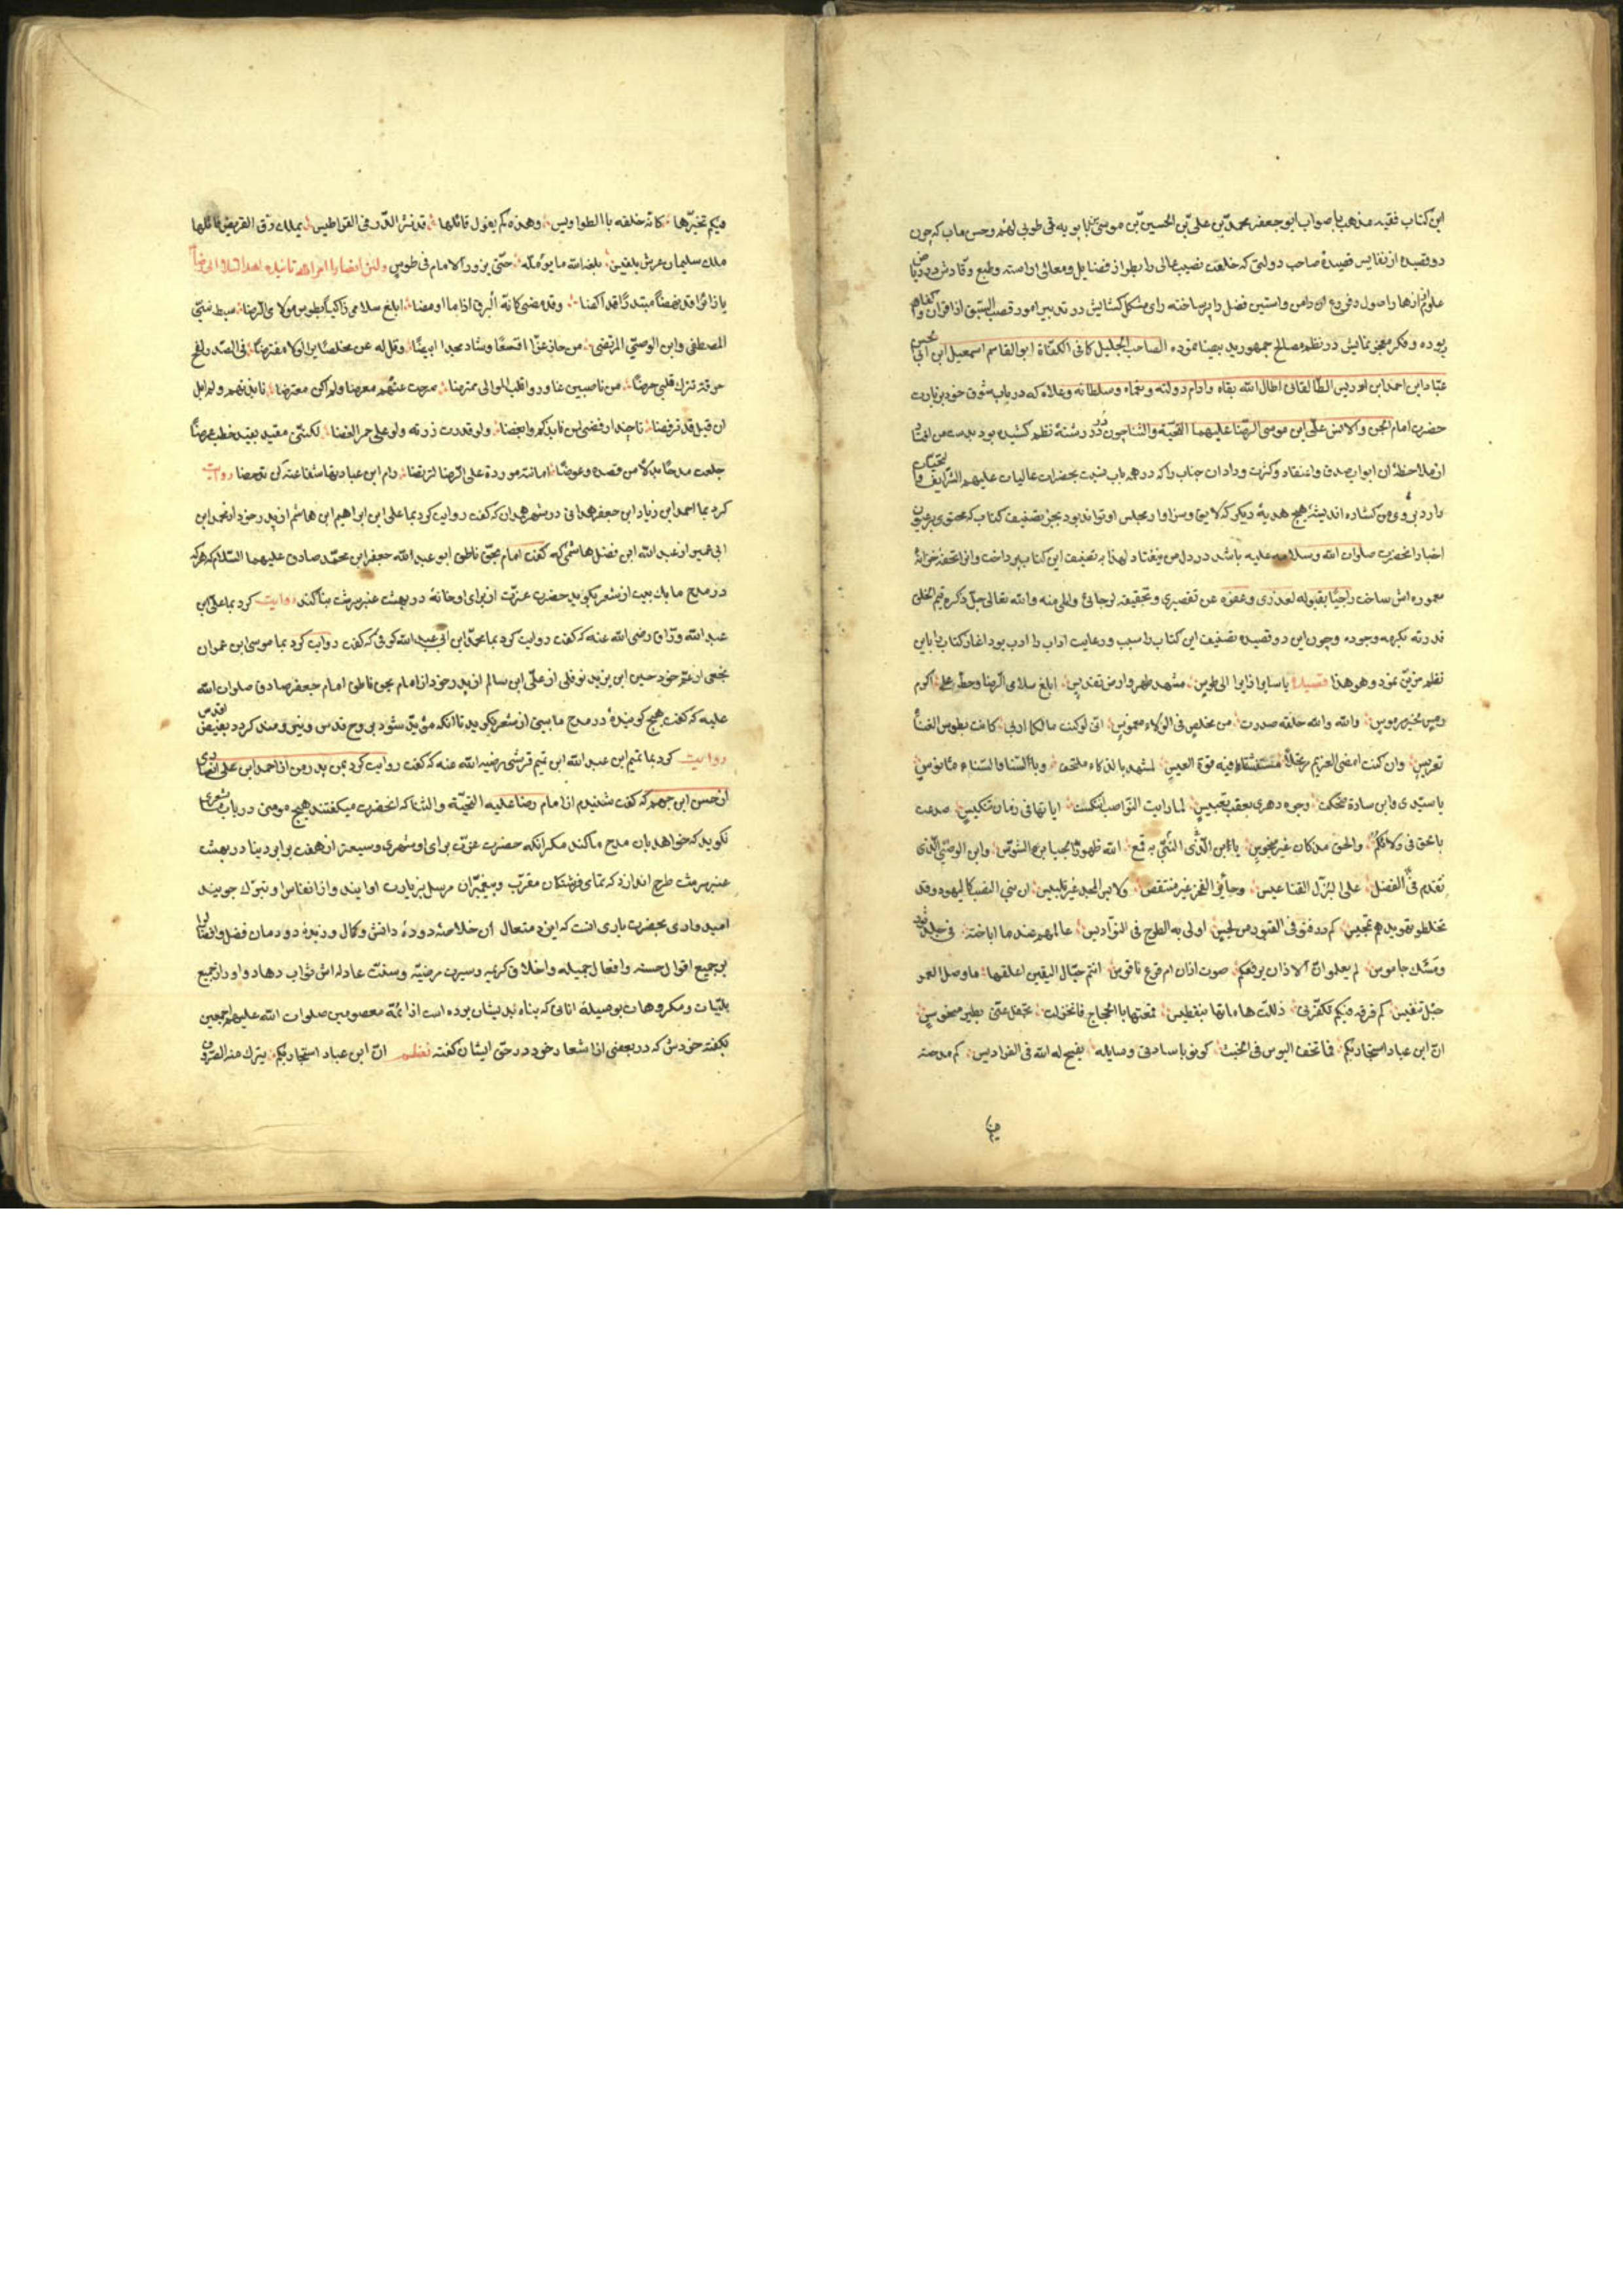 این کتاب فقیه مذهب با صواب ابو جعفر محمد بن علی بن الحسین بن موسی بن بابویه قمی طوبی لهم و حسن ماب که چون
دو قصیده از نفایس قصیدهٔ صاحب دولتی که خلعت نصیب عالی را بطراز فضایل و معانی اراسته و طبع وقادش در ریاض
علوم از ازهار اصول و فروع ان دامن و استین فضل را پر ساخته رای مشکل کشایش در تدبیر امور قصب السبق از اقران و اکفاهم
ربوده و فکر معجز نمایش در نظم مصالح جمهور ید بیضا نموده الصاحب الجلیل کافی الکفاة ابو القاسم اسمعیل ابن ابی الحسن
عباد ابن احمد ابن ادریس الطالقانی اطال الله بقاه و ادام دولته و نعماه و سلطانه و علاه که در باب شوق خود بزیارت
حضرت امام الجن و الانس علی ابن موسی الرضا علیهما التحیة و الثنا چون در در رشتهٔ نظم کشیده بود بدست من افتاد
از ملاحظهٔ ان ابواب صدق و اعتقاد و کثرت وداد ان جناب را که در همه باب نسبت بحضرات عالیات علیهم الشرایف التحیات
دارد بروی من کشاده اندیشهٔ هیچ هدیهٔ دیکر که لایق و سزاوار مجلس او تواند بود بجز تصنیف کتاب که محتوی بر عیون
اخبار انحضرت صلوات الله و سلامه علیه باشد در دل من نیفتاد لهذا به تصنیف این کتاب پرداخت و انرا تحفهٔ خزانهٔ
معموره اش ساخت راجیًا بقبوله لعذری و عفوه عن تقصیری و تحقیقه لرجائی و املی منه و الله تعالی جل ذکره قیم الخلق
قدرته بکرمه وجوده و چون این دو قصیده تصنیف این کتاب را سبب و رعایت اداب را ادب بود اغاز کتاب را باین
نظم مزین نمود و هو هذا قصیده یا سایرا زایرا الی طوس مشهد طهر و ارض تقدیس ابلغ سلامی الرضا و حط علی اکرم
رمس لخیر مرموس والله والله حلفة صدرت من مخلص فی الولاء مغموس انی لو کنت مالکا اربی کان بطوس الفناء
تعریسی و ان کنت امضی العزیم مرتحلاً منتسفًا فیه قوة العیس لمشهد بالذکاء ملتحف و بالسنا و السناء مانوس
یا سیدی و ابن سادة ضحکت وجوه دهری بعقب تعبیس لما رایت النواصب انتکست رایاتها فی زمان تنکیس صدعت
بالحق فی ولائکم و الحق مذ کان غیر مبخوس یا ابن النبی الذی به قمع الله ظهور الجبابر الشوس و ابن الوصی الذی
تقدم فی الفضل علی البزل القناعیس و حائز الفخر غیر منتقص و لابس المجد غیر تلبیس ان بنی النصب کالیهود و قد
تخلط تهویدهم تمجیس کم دفنوا فی القبور من نجس اولی به الطرح فی النواویس عالمهم عند ما اباحثه فی جلد ثور
و مسک جاموس لم یعلموا ان الاذان یرفعکم صوت اذان ام قرع ناقوس انتم حبال الیقین اعلقها ما وصل العمر
حبل تنفیس کم فرقه فیکم تکفرنی ذللت هاماتها بفطیس قمعتها بالحجاج فانخزلت تجفل عنی بطیر منحوس
ان ابن عباد استجار بکم فما تخف اللیوث فی الخیس کونوا یا سادتی وسایله یفسح له الله فی الفرادیس کم مدحته
فیکم تخبرها کانه خلفه بالطواویس و هذه کم یقول قائلها قد نثر الدر فی القراطیس یملک رق القریض قائلها
ملک سلیمان عرش بلقیس بلغه الله ما یؤمله حتی یزور الامام فی طوس
یا زائرا قد نهضا مبتدرًا قد رکضا و قد مضی کانه البرق اذا ما اومضا ابلغ سلامی زاکیًا بطوس مولای الرضا سبط نبی
المصطفی و ابن الوصی المرتضی من حاز عزًا اقعسًا و شاد مجدًا ابیضًا و قل له عن مخلص یری الولا مفترضًا فی الصدر لفح
حرقة تترک قلبی حرضًا من ناصبین غادروا قلب الموالی ممرضا صرحت عنهم معرضا ولم اکن معرضا نابذتهم ولم ابل
ان قیل قد ترفضا یا حبذا رفضی لمن نابذکم و ابغضا ولو قدرت زرته ولو علی جمر الغضا لکننی معتقل بقید خطب عرضًا
جعلت مدحی بدلاً من قصده و عوضًا امانة موردة علی الرضا لیرتضا رام ابن عباد بها شفاعة لن تدحضا روایت
کرد بما احمد ابن زیاد ابن جعفر همدانی در شهر همدان که کفت روایت کرد بما علی ابن ابراهیم ابن هاشم از پدر خود از محمد ابن
ابی عمیر از عبد الله ابن فضل هاشمی که کفت امام بحق ناطق ابو عبد الله جعفر ابن محمد صادق علیهما السلام که هر که
در مدح ما یک بیت از شعر بکوید حضرت عزت از برای او خانهٔ در بهشت عنبر سرشت بنا کند روایت کرد بما علی ابن
عبد الله وراق رضی الله عنه که کفت روایت کرد بما محمد ابن ابی عبد الله کوفی که کفت روایت کرد بما موسی ابن عمران
نخعی از عم خود حسین ابن یزید نوفلی از علی ابن سالم از پدر خود از امام بحق ناطق امام جعفر صادق صلوات الله
علیه که کفت هیچ کویندهٔ در مدح ما بیتی از شعر نکوید تا انکه مؤید شود بروح قدس و نیرومند کردد بفیض اقدس
روایت کرد بما تمیم ابن عبد الله ابن تمیم قرشی رضی الله عنه که کفت روایت کرد بمن پدر من از احمد ابن علی انصاری
از حسن ابن جهم که کفت شنیدم از امام رضا علیه التحیة و الثنا که انحضرت میکفتند هیچ مومنی در باب ما شعری
نکوید که خواهد بان مدح ما کند مکر انکه حضرت عزت برای او شهری وسیعتر از هفت برابر دنیا در بهشت
عنبر سرشت طرح اندازد که تمامی فرشتکان مقرب و پیغمبران مرسل بزیارت او ایند و از انفاس او تبرک جویند
امیدواری بحضرت باری انست که ایزد متعال ان خلاصهٔ دودهٔ دانش و کمال و زبدهٔ دودمان فضل و افضال را
بر جمیع اقوال حسنه و افعال جمیله و اخلاق کریمه و سیرت مرضیه و سنت عادله اش ثواب دهاد و او را از جمیع
بلیات و مکروهات بوصیلهٔ انانی که پناه بدیشان بوده است از ائمهٔ معصومین صلوات الله علیهم اجمعین
بکفته خودش که در بعضی از اشعار خود در حق ایشان کفته نظم ان ابن عباد استجار بکم یترک عنه الصروف